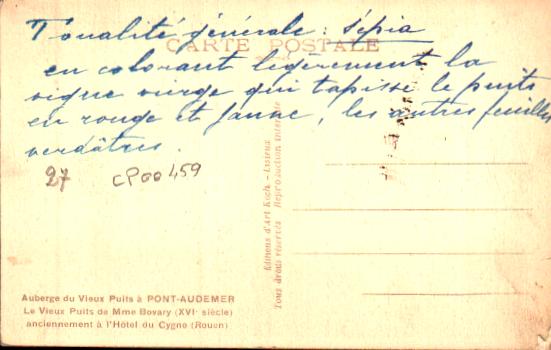 Tonalité générale : sépia
CARTE POSTALE
en colorant légèrement la
vigne vierge qui tapisse le puits
en rouge et jaune, les autres feuilles
verdâtres.
27 CP00459
Editions d'Art Koch - Lisieux
Tous droits réservés Reproduction interdite
Auberge du Vieux Puits à PONT-AUDEMER
Le Vieux Puits de Mme Bovary (XVIe siècle)
anciennement à l'Hôtel du Cygne (Rouen)